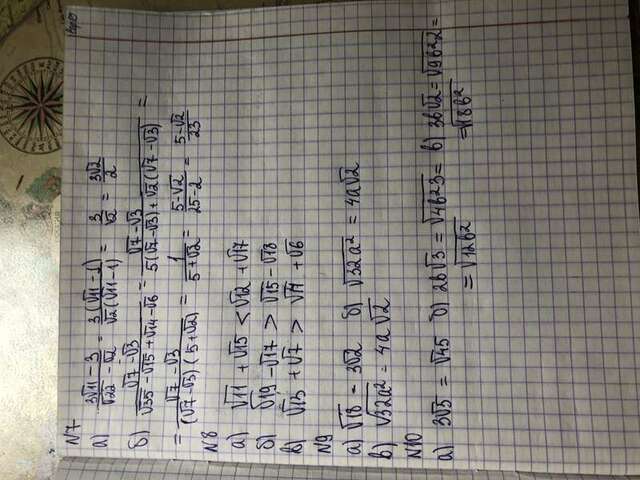 N7
а) (3√11 - 3)/(√22 - √2) = 3(√11 - 1)/(√2(√11 - 1)) = 3/√2 = 3√2/2
б) (√7 - √3)/(√35 - √15 + √14 - √6) = (√7 - √3)/(5(√7 - √3) + √2(√7 - √3)) =
= (√7 - √3)/((√7 - √3)(5 + √2)) = 1/(5 + √2) = (5 - √2)/(25 - 2) = (5 - √2)/23
N8
а) √11 + √15 < √12 + √17
б) √19 - √17 > √15 - √18
в) √13 + √7 > √11 + √6
N9
а) √18 = 3√2 б) √32a² = 4a√2
в) √32a² = 4a√2
N10
а) 3√3 = √45 б) 2b√3 = √4b²3 = в) 3b√2 = √9b²2 =
= √12b² = √18b²